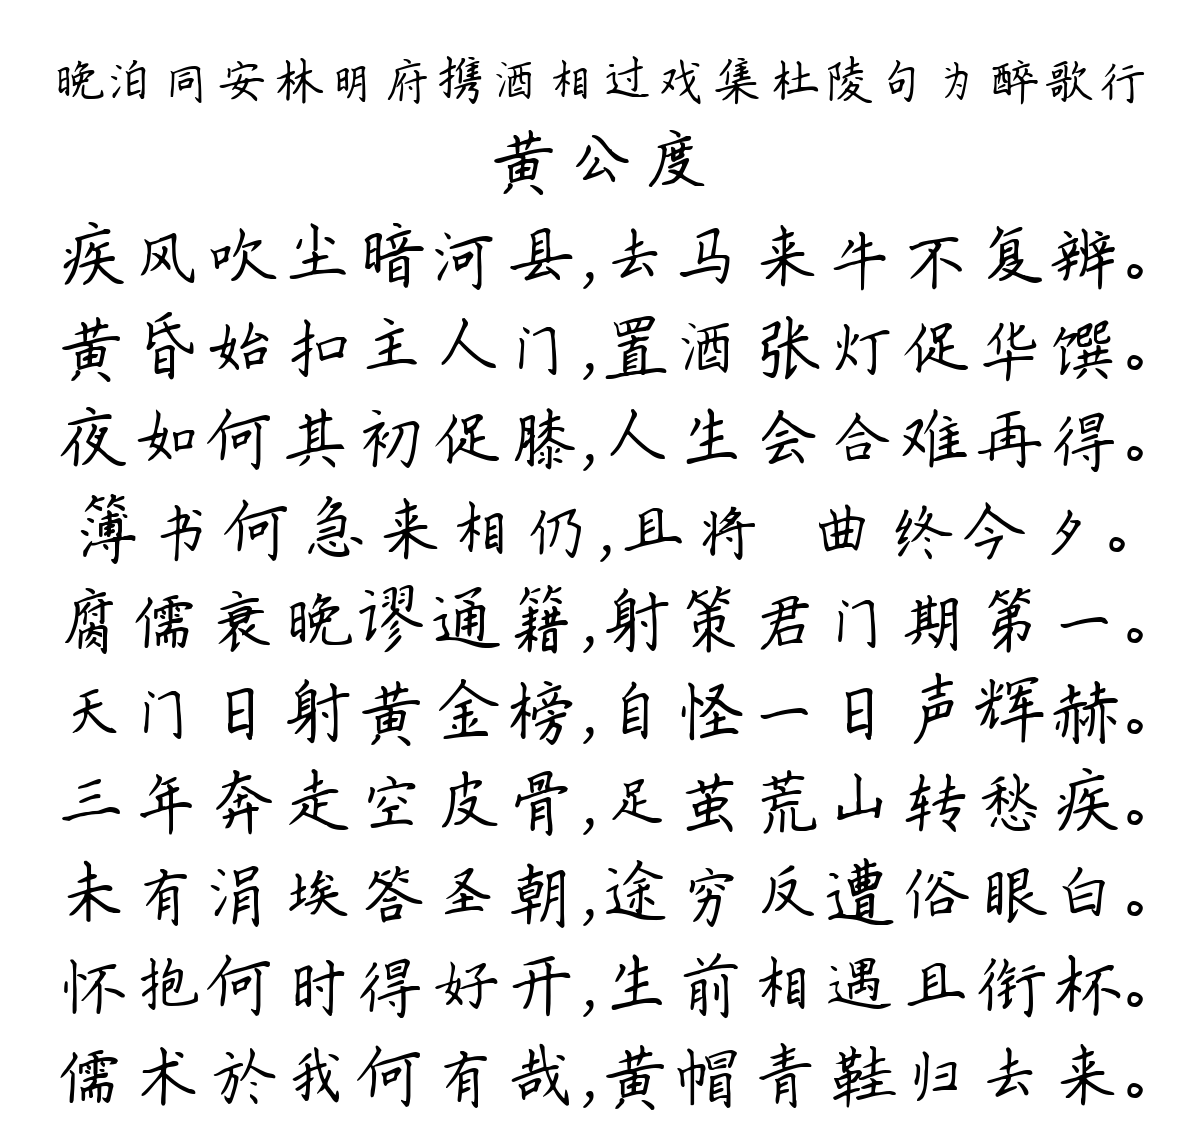 晚泊同安林明府携酒相过戏集杜陵句为醉歌行
黄公度
疾风吹尘暗河县,去马来牛不复辨。
黄昏始扣主人门,置酒张灯促华馔。
夜如何其初促膝,人生会合难再得。
簿书何急来相仍,且将 曲终今夕。
腐儒衰晚谬通籍,射策君门期第一。
天门日射黄金榜,自怪一日声辉赫。
三年奔走空皮骨,足茧荒山转愁疾。
未有涓埃答圣朝,途穷反遭俗眼白。
怀抱何时得好开,生前相遇且衔杯。
儒术於我何有哉,黄帽青鞋归去来。